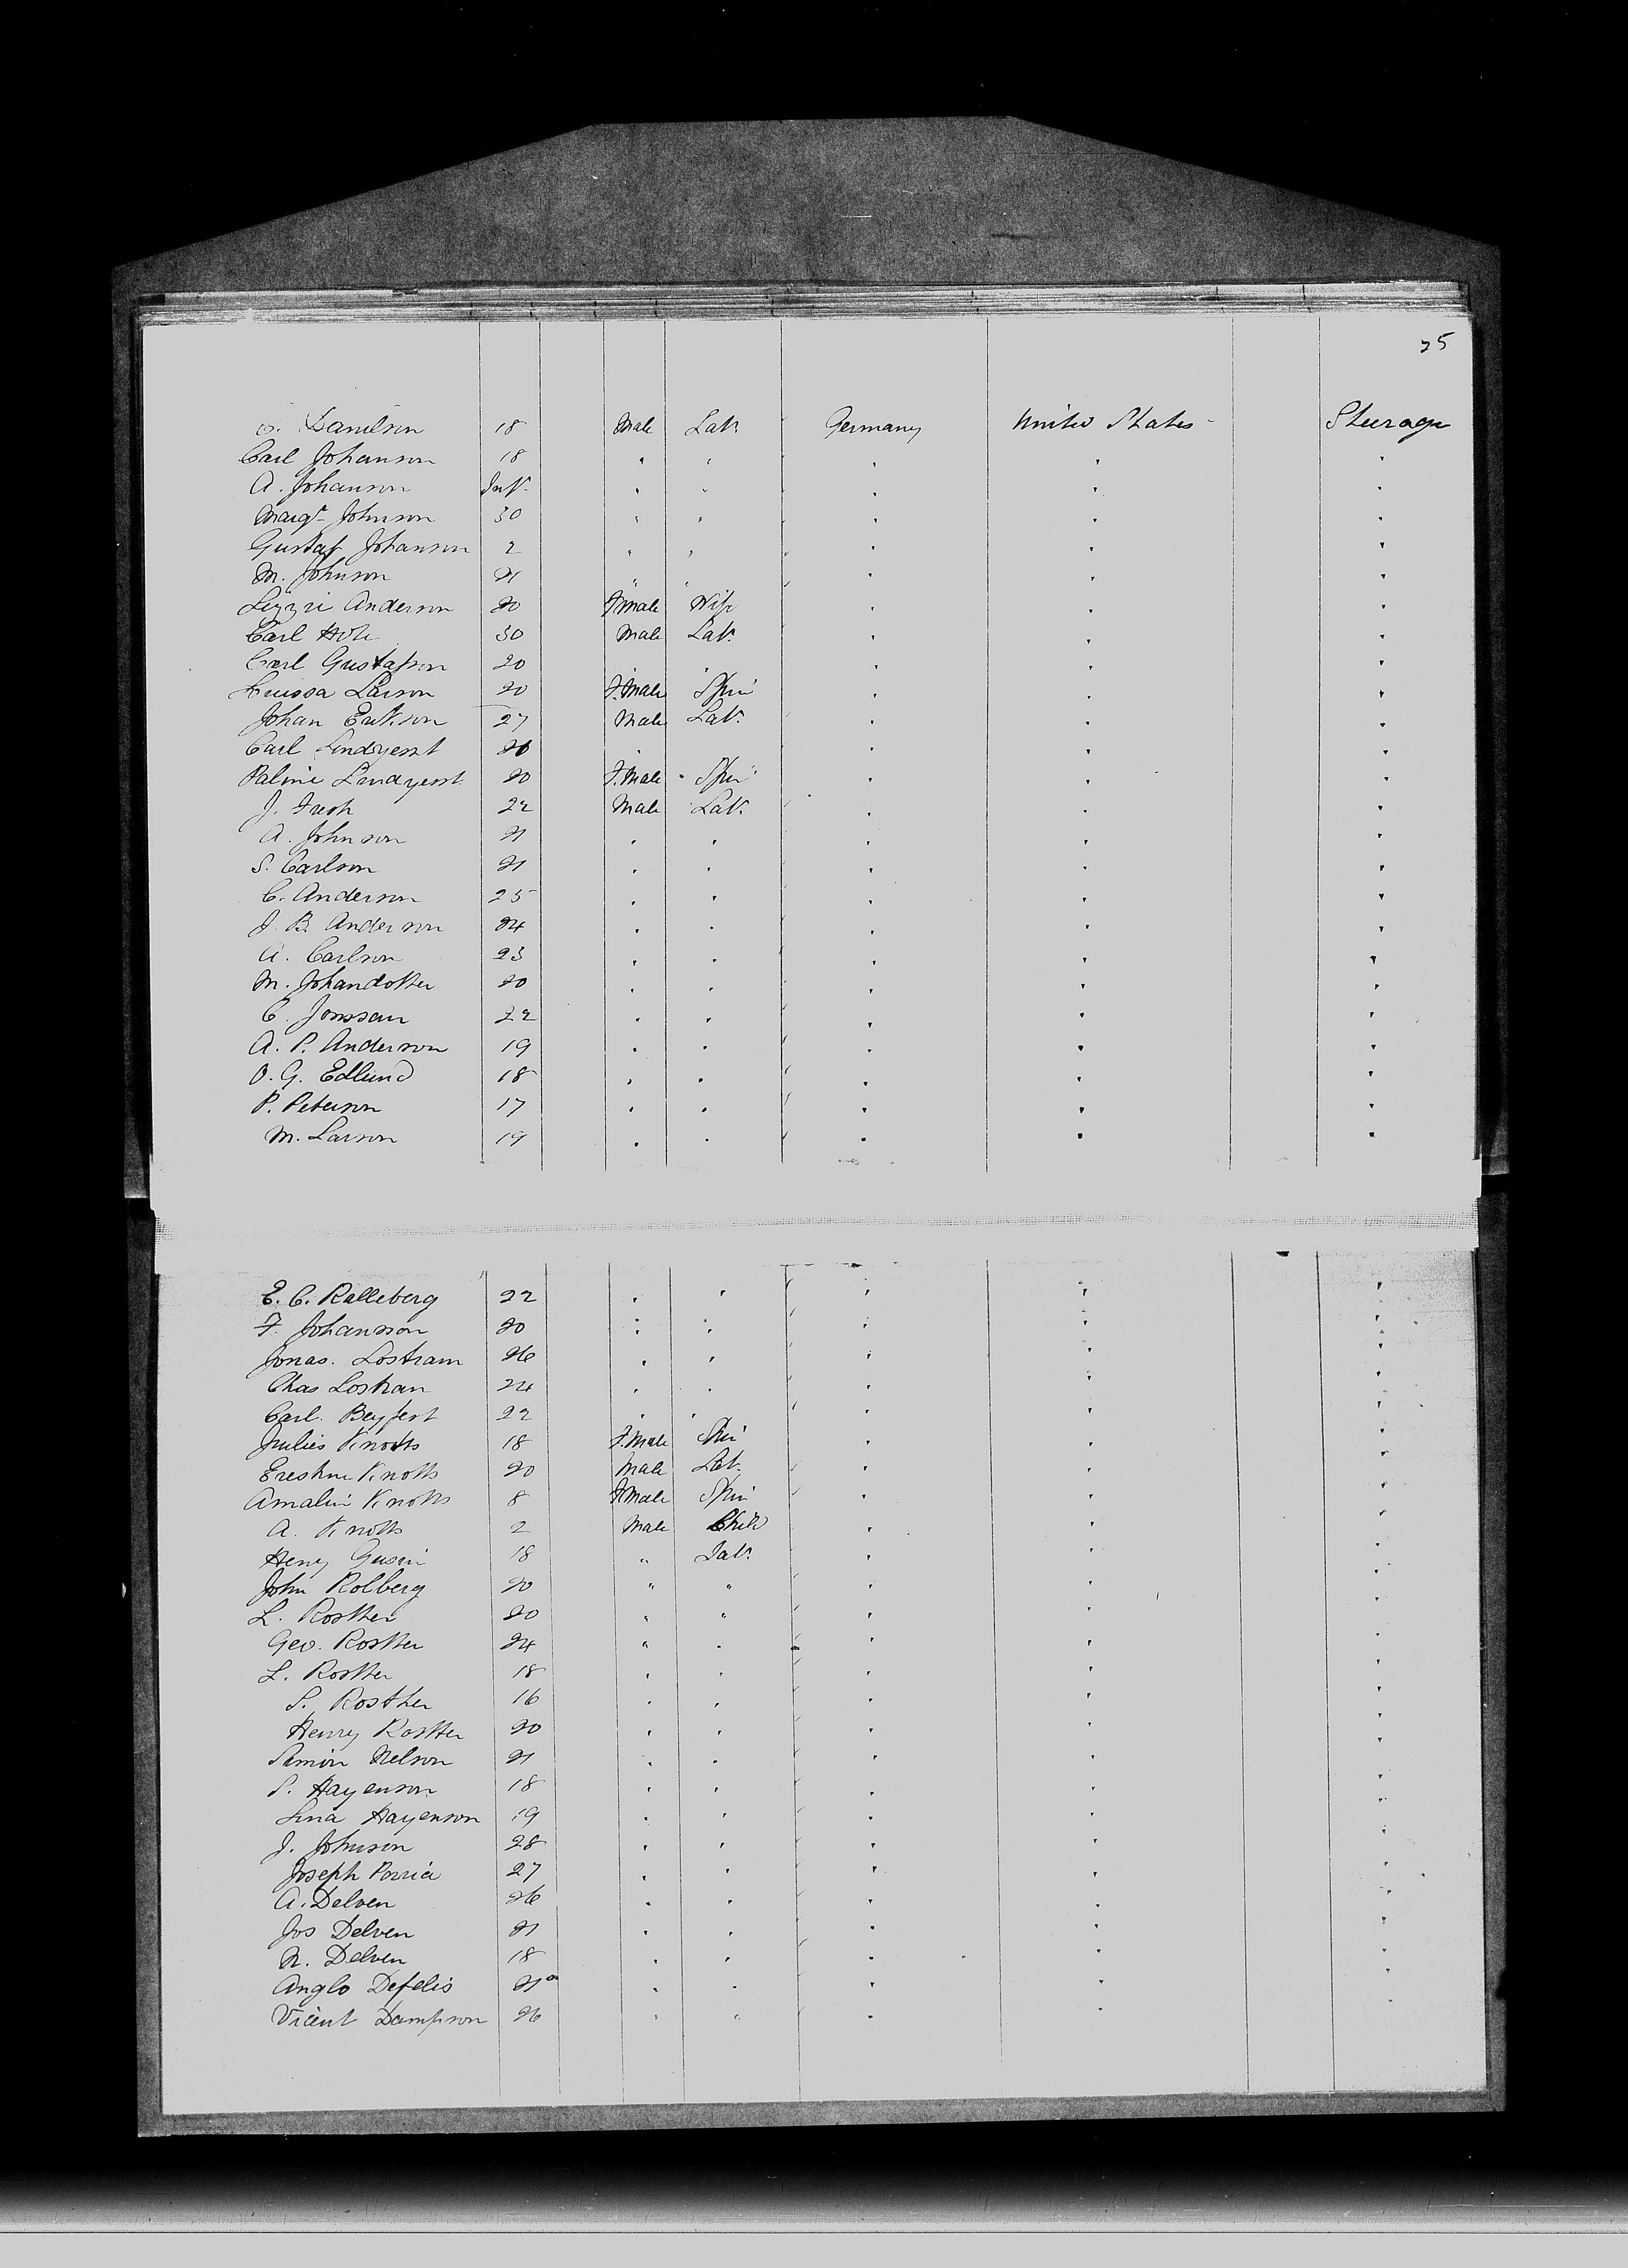 25
Danilson 18 Male Lab. Germany United States Steerage
Carl Johanson 18 " " " " "
A. Johanson Inf. " " " " "
Margt. Johnson 30 " " " " "
Gustaf Johanson 2 " " " " "
M. Johnson 21 " " " " "
Lizzie Anderson 20 F.male Wife " " "
Carl 30 Male Lab. " " "
Carl Gustafson 20 " " " " "
Larson 20 F.male Spin " " "
Johan Erikson 27 Male Lab. " " "
Carl " " " " "
20 F.male Spin " " "
J. 22 Male Lab. " " "
A. Johnson 21 " " " " "
S. Carlson 21 " " " " "
C. Anderson 25 " " " " "
J. B. Anderson 24 " " " " "
A. Carlson 23 " " " " "
M. Johandotter 20 " " " " "
C. Jonssan 22 " " " " "
A. P. Anderson 19 " " " " "
O. G. Edlund 18 " " " " "
P. Peterson 17 " " " " "
M. Larson 19 " " " " "
E. C. Ralleberg 22 " " " " "
F. Johansson 20 " " " " "
Jonas. Lostram 26 " " " " "
Chas Lostran 24 " " " " "
Carl. 22 " " " " "
Julies Knotts 18 F.male Spin " " "
Knotts 20 Male Lab. " " "
Amalin Knotts 8 F.male Spin " " "
A. Knotts 2 Male Child " " "
Henry 18 " Lab. " " "
John Rolberg 20 " " " " "
L. Rosther 20 " " " " "
Geo. Rosther 24 " " " " "
L. Rosther 18 " " " " "
S. Rosther 16 " " " " "
Henry Rosther 20 " " " " "
Simon Nelson 21 " " " " "
S. Hayenson 18 " " " " "
Lina Hayenson 19 " " " " "
J. Johnson 28 " " " " "
Joseph 27 " " " " "
A. Delven 26 " " " " "
Jos Delven 21 " " " " "
N. Delven 18 " " " " "
Anglo Defelis 21 " " " " "
Vicent Dampson 26 " " " " "